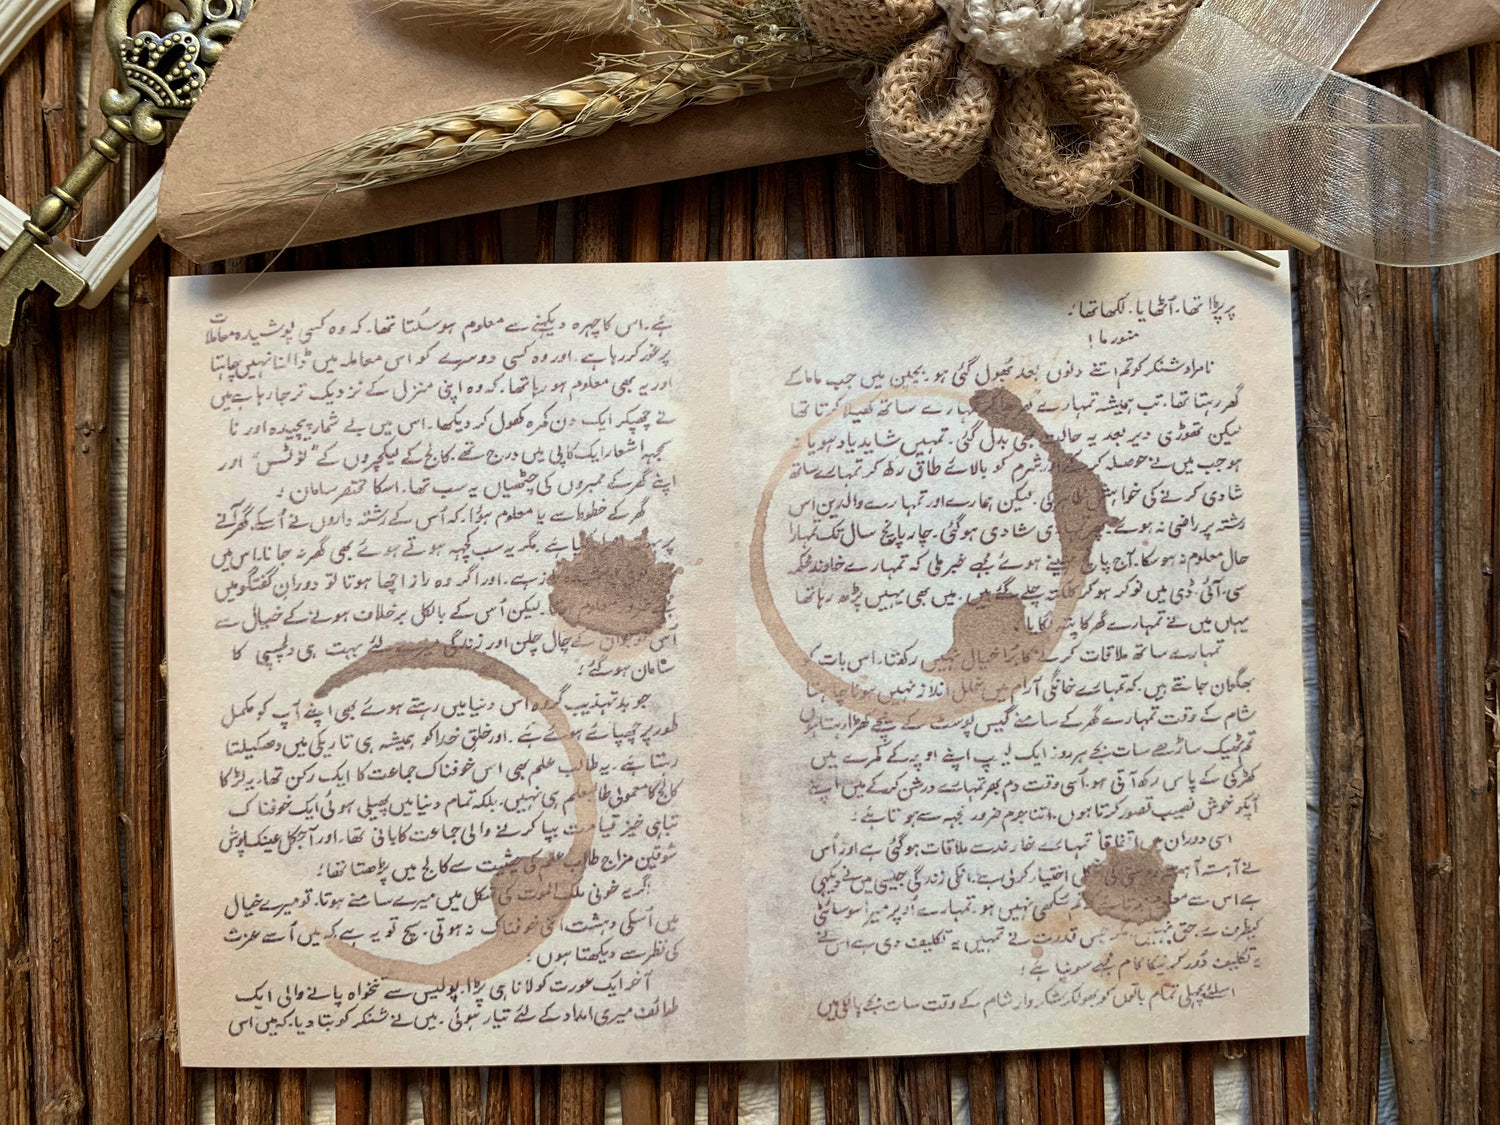 پر پڑا تھا۔ اُٹھایا۔ لکھا تھا:
منورما!
نامراد شنکر کو تم اتنے دنوں بعد بھول گئی ہو۔ بچپن میں جب ماما کے
گھر رہتا تھا۔ تب ہمیشہ تمہارے ساتھ کھیلا کرتا تھا
لیکن تھوڑی دیر بعد یہ حالت بھی بدل گئی۔ تمہیں شاید یاد ہو یا نہ
ہو جب میں نے حوصلہ کر کے اور شرم کو بالائے طاق رکھ کر تمہارے ساتھ
شادی کرنے کی خواہش ظاہر کی۔ لیکن ہمارے اور تمہارے والدین اس
رشتہ پر راضی نہ ہوئے۔ پھر تمہاری شادی ہو گئی۔ چار پانچ سال تک تمہارا
حال معلوم نہ ہو سکا۔ آج پانچ مہینے ہوئے مجھے خبر ملی کہ تمہارے خاوند محکمہ
سی۔ آئی۔ ڈی میں نوکر ہو کر کلکتہ چلے گئے ہیں۔ میں بھی یہیں پڑھ رہا تھا
یہاں میں نے تمہارے گھر کا پتہ لگایا۔
تمہارے ساتھ ملاقات کرنے کا بُرا خیال نہیں رکھتا۔ اس بات کو
بھگوان جانتے ہیں۔ کہ تمہارے خانگی آرام میں خلل انداز نہیں ہونا چاہتا
شام کے وقت تمہارے گھر کے سامنے گیس پوسٹ کے نیچے کھڑا رہتا ہوں
تم ٹھیک ساڑھے سات بجے ہر روز ایک لیمپ اپنے اوپر کے کمرے میں
کھڑکی کے پاس رکھ آتی ہو۔ اُسی وقت دم بھر تمہارے درشن کر کے میں اپنے
آپکو خوش نصیب تصور کرتا ہوں۔ اتنا جرم ضرور مجھ سے ہوتا ہے:
اسی دوران میں اتفاقاً تمہارے خاوند سے ملاقات ہو گئی ہے اور اُس
نے آہستہ آہستہ دوستی کی شکل اختیار کر لی ہے۔ انکی زندگی جیسی میں نے دیکھی
ہے اس سے معلوم ہوتا ہے کہ تم سُکھی نہیں ہو۔ تمہارے اُوپر میرا سوسائٹی
کیطرف سے حق نہیں۔ مگر جس قدرت نے تمہیں یہ تکلیف دی ہے اس نے
یہ تکلیف دُور کرنیکا کام مجھے سونپا ہے:
اسلئے پچھلی تمام باتوں کو بھولکر شکروار شام کے وقت سات بجے پالکی میں
ہے۔ اس کا چہرہ دیکھنے سے معلوم ہو سکتا تھا۔ کہ وہ کسی پوشیدہ معاملات
پر غور کر رہا ہے۔ اور وہ کسی دوسرے کو اس معاملہ میں ڈالنا نہیں چاہتا
اور یہ بھی معلوم ہو رہا تھا۔ کہ وہ اپنی منزل کے نزدیک تر جا رہا ہے میں
نے چھپکر ایک دن کمرہ کھول کر دیکھا۔ اس میں بے شمار پیچیدہ اور نا
سمجھ اشعار ایک کاپی میں درج تھے۔ کالج کے لیکچروں کے "نوٹس" اور
اپنے گھر کے ممبروں کی چٹھیاں یہ سب تھا۔ اسکا مختصر سامان:
گھر کے خطوط سے یا معلوم ہوا۔ کہ اُس کے رشتہ داروں نے اُسکے گھر آنے
پر ہے۔ مگر یہ سب کچھ ہوتے ہوئے بھی گھر نہ جانا۔ اس میں
راز ہے۔ اور اگر وہ راز اچھا ہوتا تو دورانِ گفتگو میں
مجھے ضرور معلوم ہوتا۔ لیکن اُس کے بالکل برخلاف ہونے کے خیال سے
اُسی نوجوان کے چال چلن اور زندگی میرے لئے بہت ہی دلچسپی کا
سامان ہو گئے:
جو بدتہذیب گروہ اس دنیا میں رہتے ہوئے بھی اپنے آپ کو مکمل
طور پر چھپائے ہوئے ہے۔ اور خلقِ خدا کو ہمیشہ ہی تاریکی میں دھکیلتا
رہتا ہے۔ یہ طالب علم بھی اس خوفناک جماعت کا ایک رکن تھا۔ یہ لڑکا
کالج کا معمولی طالبعلم ہی نہیں۔ بلکہ تمام دنیا میں پھیلی ہوئی ایک خوفناک
تباہی خیز قیامت بپا کرنے والی جماعت کا بانی تھا۔ اور آجکل عینک پوش
شوقین مزاج طالب علم کی حیثیت سے کالج میں پڑھتا تھا:
اگر یہ خونی ملک الموت کی شکل میں میرے سامنے ہوتا۔ تو میرے خیال
میں اُسکی دہشت اتنی خوفناک نہ ہوتی۔ سچ تو یہ ہے کہ میں اُسے عزت
کی نظر سے دیکھتا ہوں:
آخر ایک عورت کو لانا ہی پڑا۔ پولیس سے تنخواہ پانے والی ایک
طوائف میری امداد کے لئے تیار ہوئی۔ میں نے شنکر کو بتا دیا۔ کہ میں اس